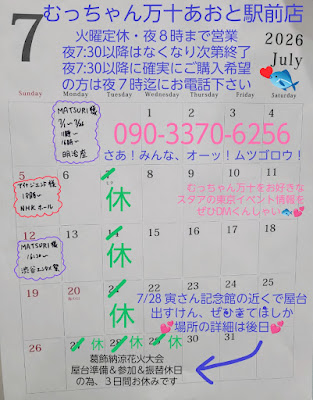 むっちゃん万十あおと駅前店
7
火曜定休・夜８時まで営業
夜7:30以降はなくなり次第終了
夜7:30以降に確実にご購入希望
の方は夜７時迄にお電話下さい
2026
July
Sunday
Monday
Tuesday
Wednesday
Thursday
Friday
Saturday
MATSURI 様
明治座
1 2 3 4
090-3370-6256
さあ！みんな、オーッ！ムツゴロウ！
5 6 7 8 9 10 11
18時〜
NHKホール
休
むっちゃん万十をお好きな
スタアの東京イベント情報を
ぜひDMくんしゃい
12 13 14 15 16 17 18
MATSURI 様
渋谷
休
19 20 21 22 23 24 25
休
7/28 寅さん記念館の近くで屋台
出すけん、ぜひきてほしか
場所の詳細は後日
26 27 28 29 30 31
休 休 休
葛飾納涼花火大会
屋台準備＆参加＆振替休日
の為、３日間お休みです